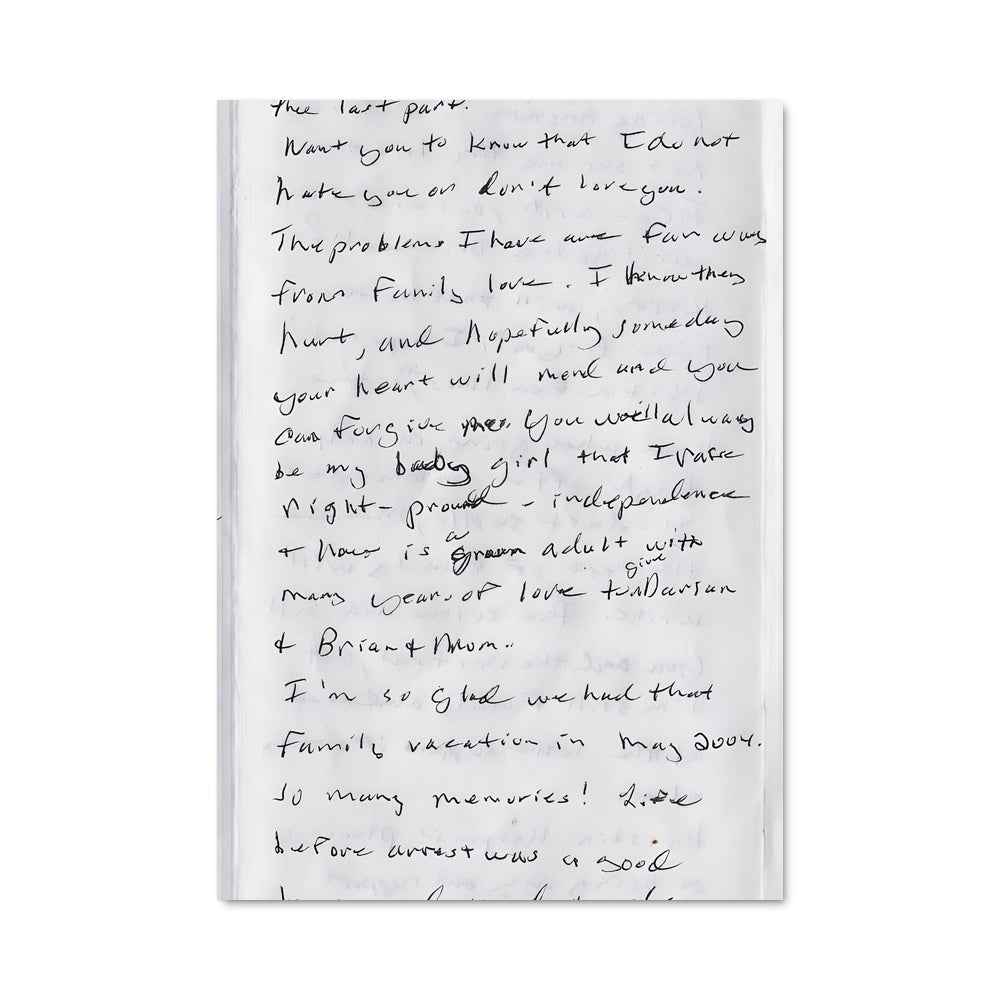 the last part.
Want you to know that I do not
hate you or don't love you.
The problems I have are far way
from family love. I know they
hurt, and hopefully someday
your heart will mend and you
can forgive me. You will always
be my baby girl that I raise
right - proud - independence
+ now is a grown adult with
many years of love to give Darian
+ Brian + Mom..
I'm so glad we had that
family vacation in May 2004.
So many memories! Life
before arrest was a good